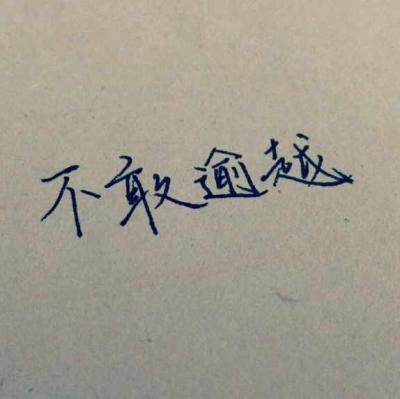 不敢逾越